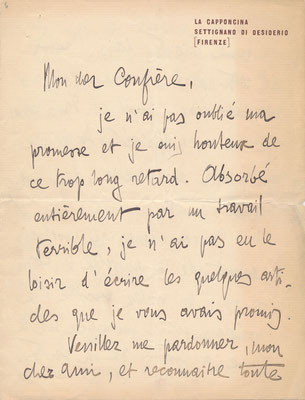 LA CAPPONCINA
SETTIGNANO DI DESIDERIO
[FIRENZE]
Mon cher Confrère,
je n'ai pas oublié ma
promesse et je suis honteux de
ce trop long retard. Absorbé
entièrement par un travail
terrible, je n'ai pas eu le
loisir d'écrire les quelques arti-
cles que je vous avais promis.
Veuillez me pardonner, mon
cher ami, et reconnaître toute